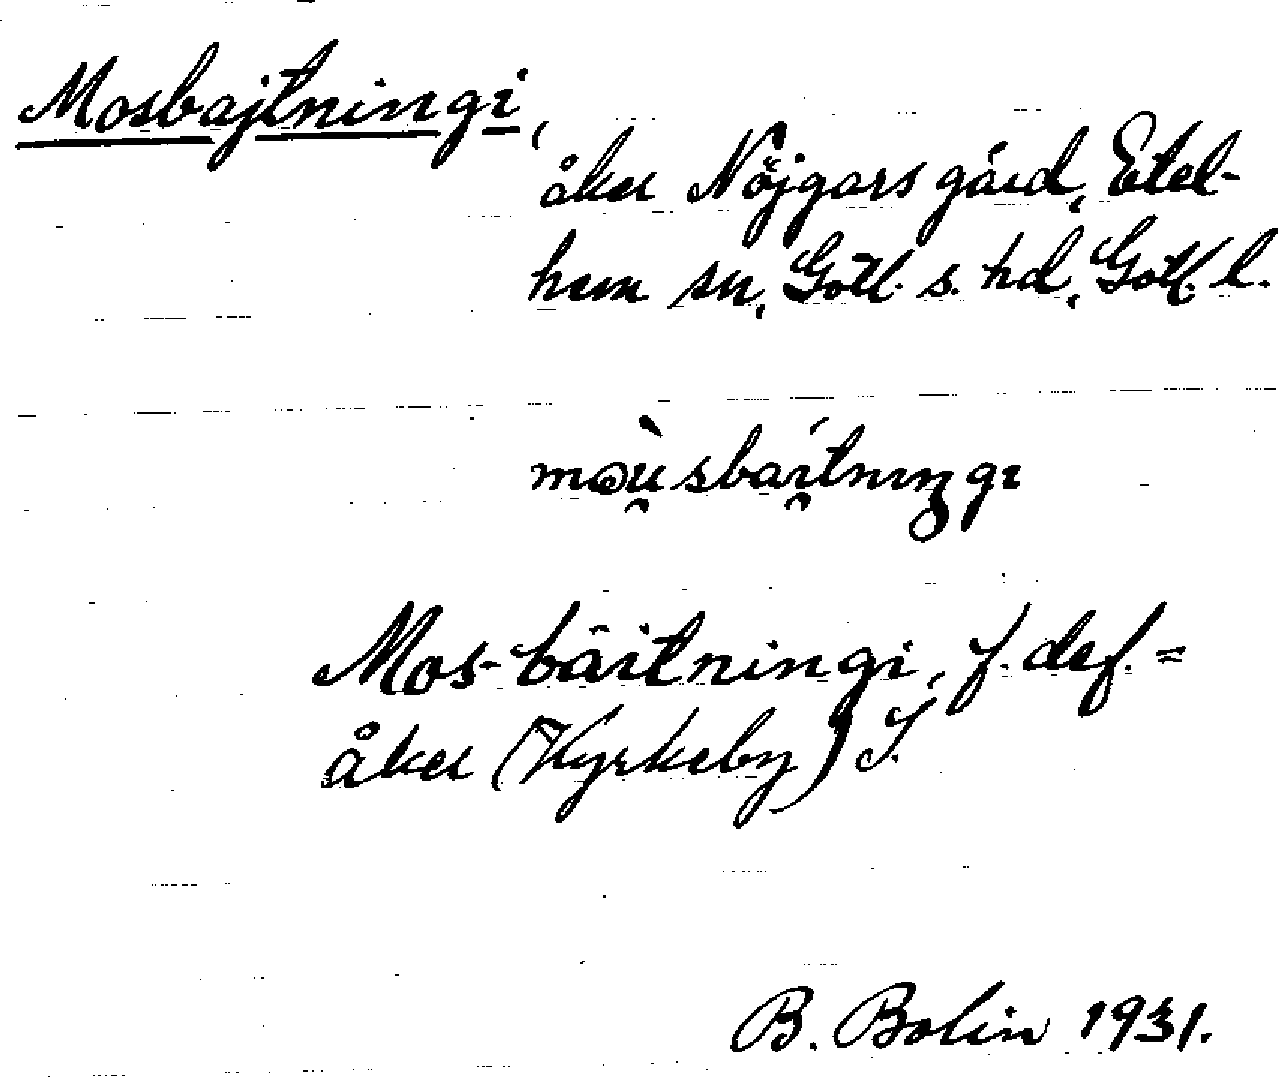 Mosbajtningi,
åker Nöjgars gård, Etel-
hem sn, Gotl. s. hd, Gotl. l.
mɷù̯sbaı̯́tnıŋgı
Mos-bäitningi, f. def. =
åker (Kyrkeby) S.
B. Bolin 1931.